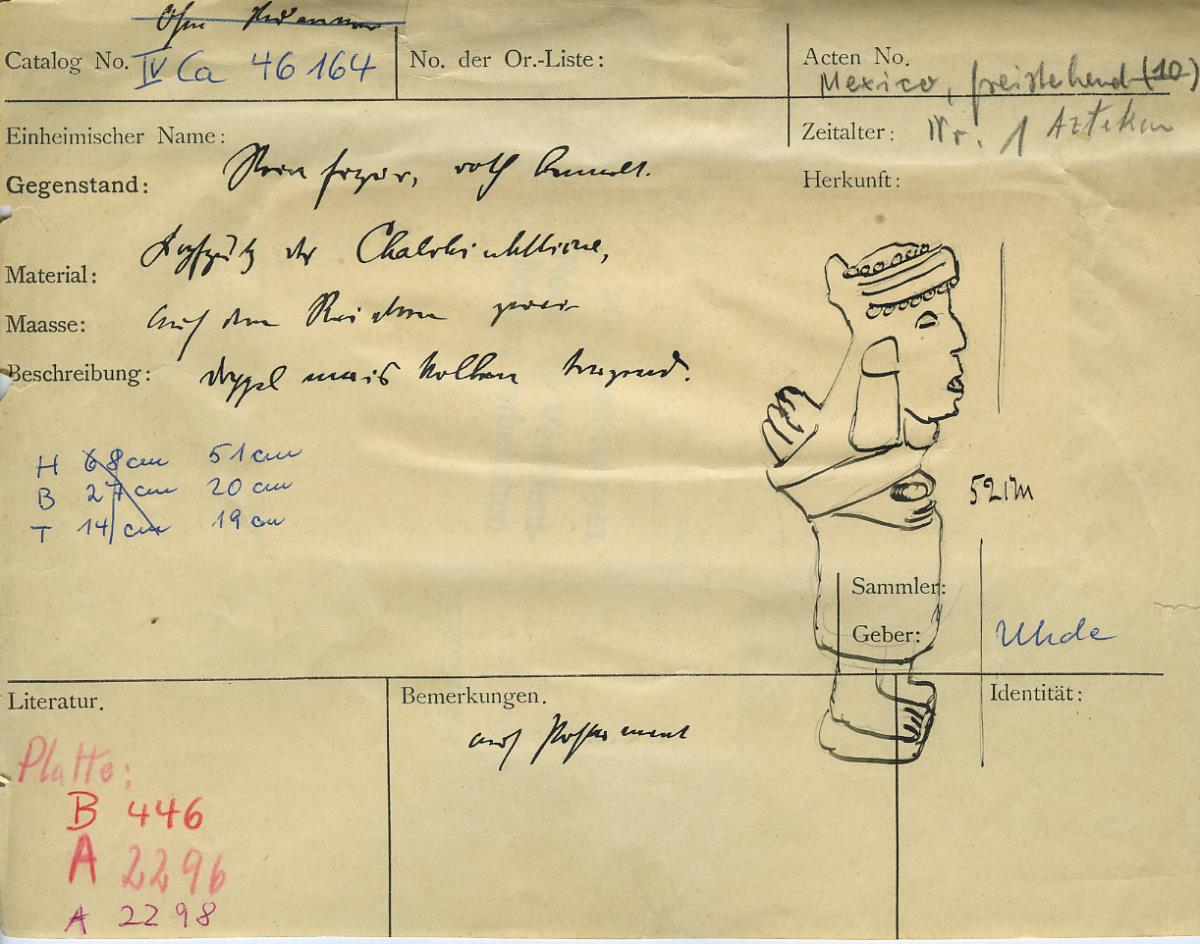 Ohne Nummer
Catalog No. IV Ca 46164
No. der Or.-Liste:
Acten No.
Mexico, freistehend (10)
Zeitalter: Nr. 1 Azteken
Einheimischer Name:
Gegenstand: Steinfigur, roth bemalt.
Herkunft:
Kopfputz der Chalchiuhtlicue,
Material:
Maasse: auf dem Rücken zwei
Beschreibung: doppel mais kolben tragend.
H 68 cm 51 cm
B 27 cm 20 cm
T 14 cm 19 cm
52 cm
Sammler:
Geber: Uhde
Literatur.
Bemerkungen.
Identität:
auf Postament
Platte:
B 446
A 2296
A 2298